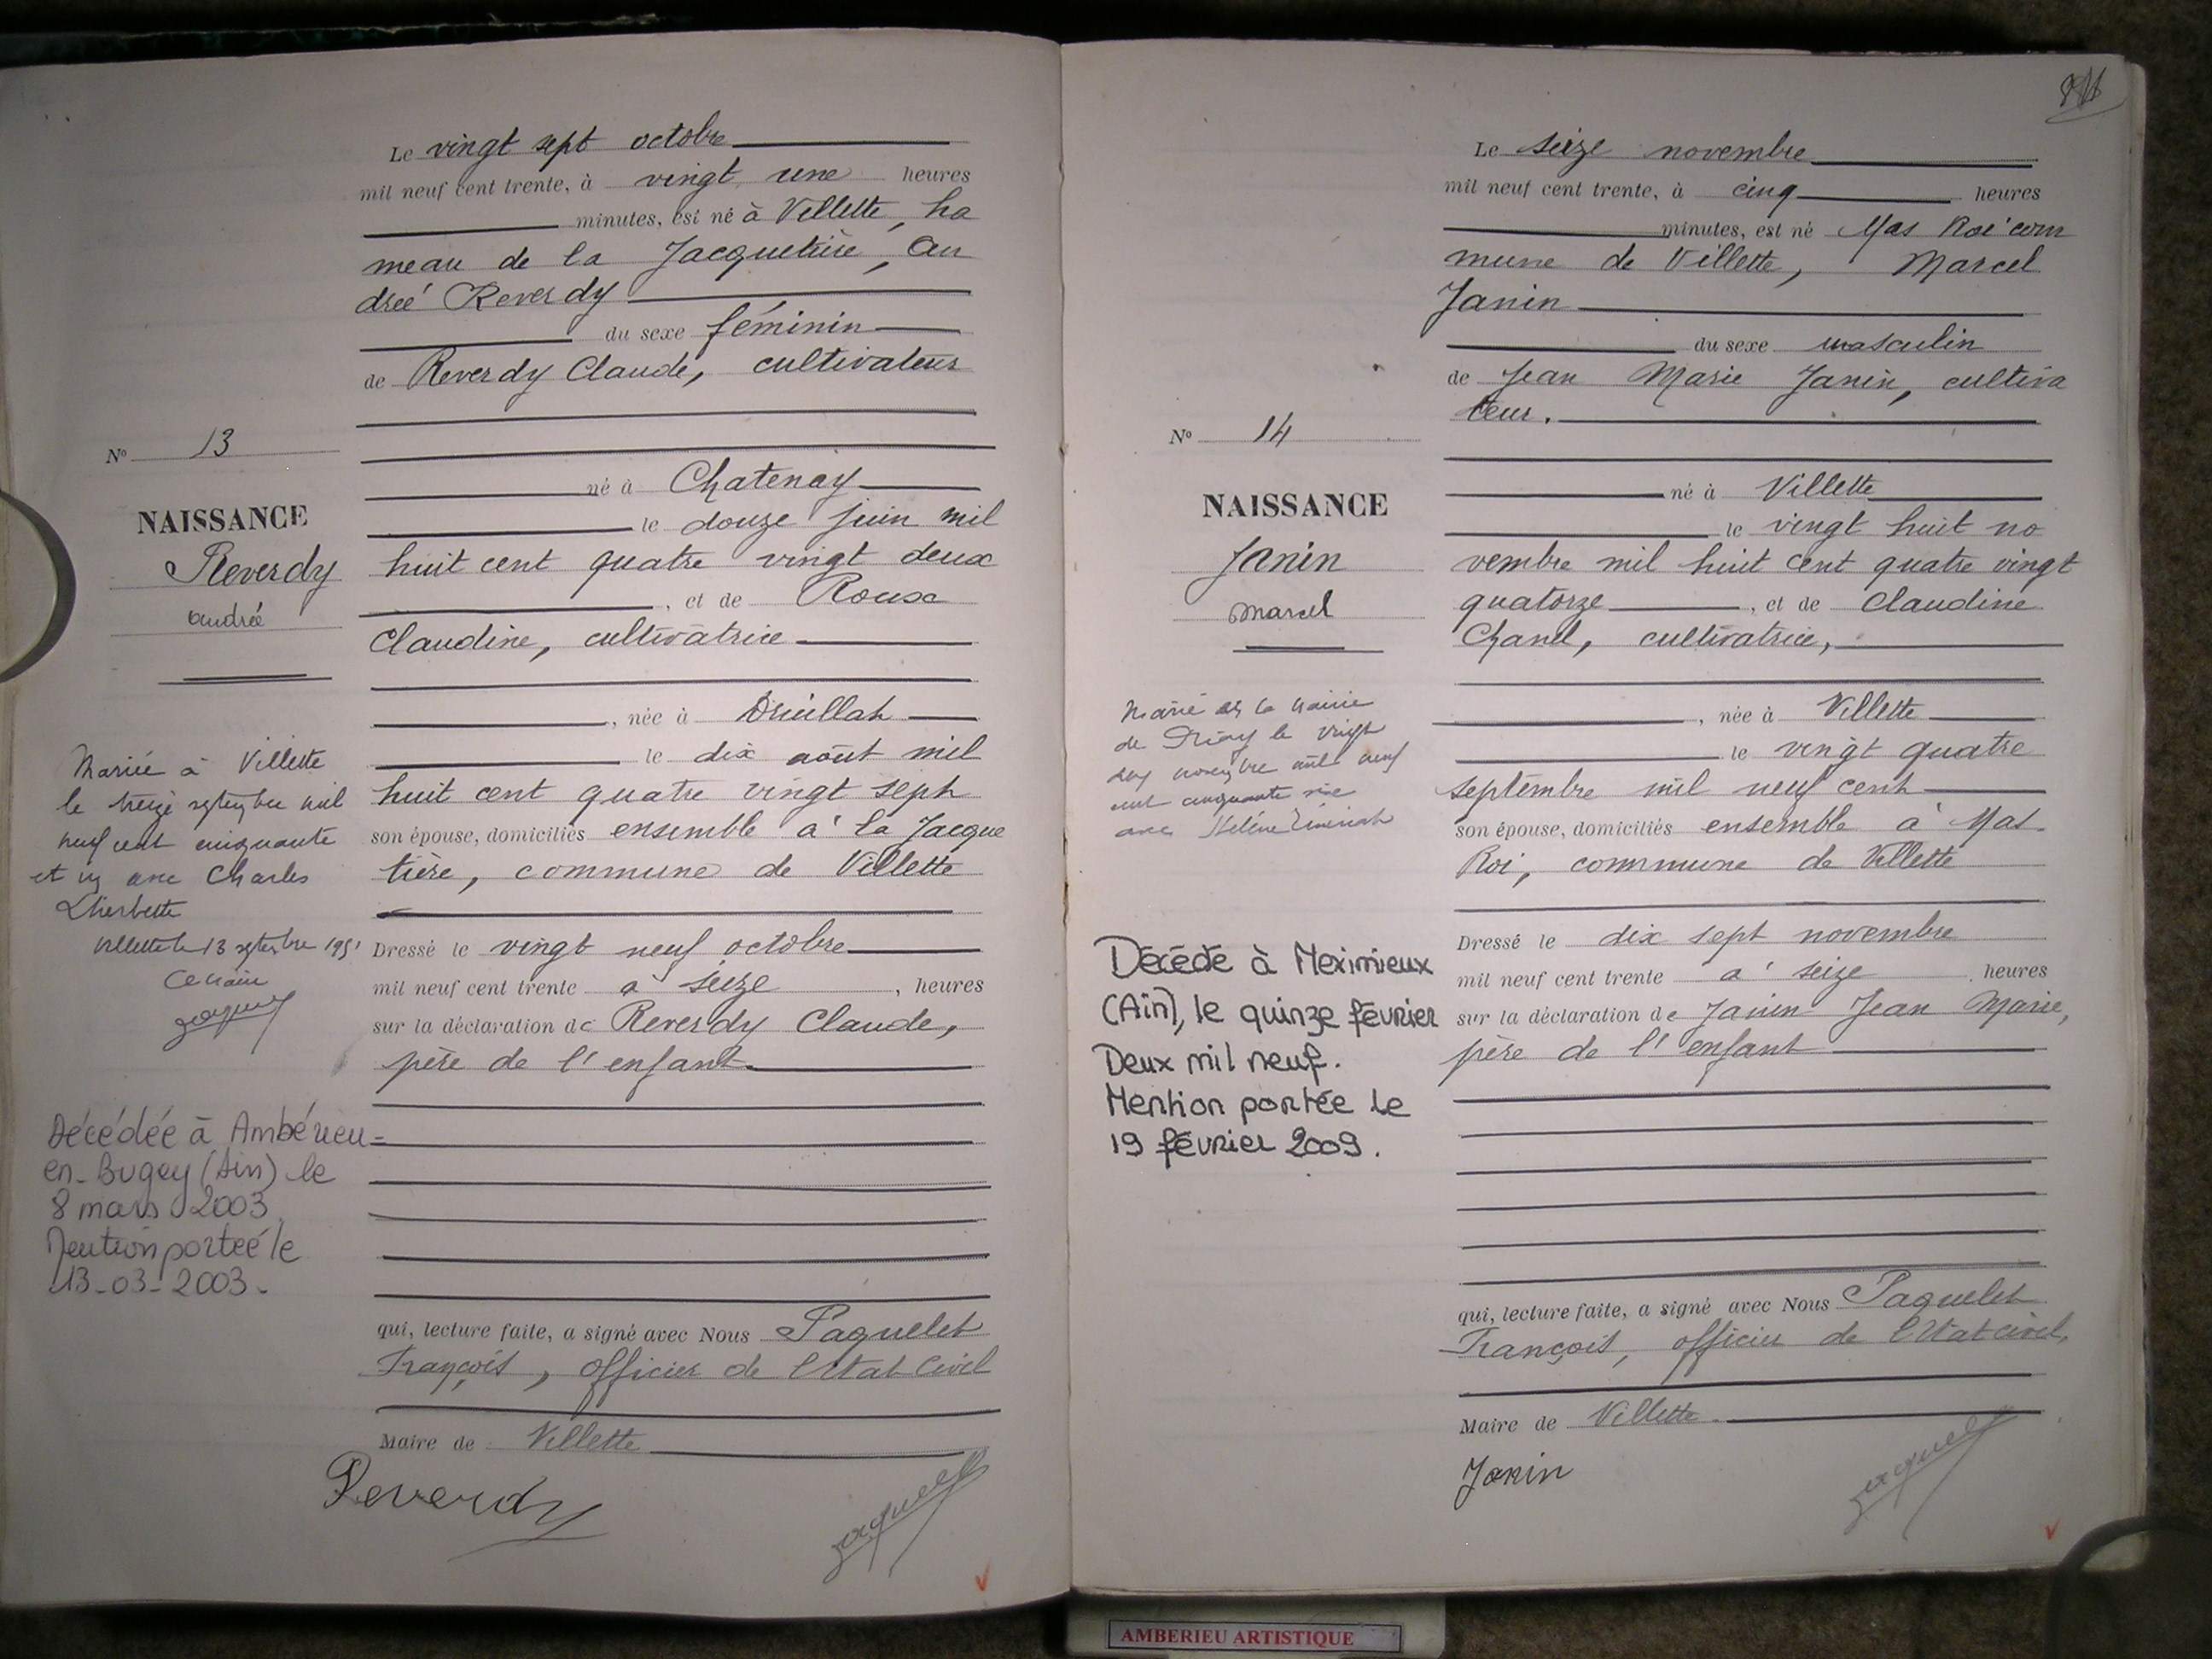 Le vingt sept octobre
mil neuf cent trente, à vingt une heures
minutes, est né à Villette, ha
meau de la Jacquetière, an
drée Reverdy
du sexe féminin
de Reverdy Claude, cultivateur
né à Chatenay
le douze juin mil
huit cent quatre vingt deux
, et de Roux
Claudine, cultivatrice
, née à Druillat
le dix août mil
huit cent quatre vingt sept
son épouse, domiciliés ensemble à la Jacque
tière, commune de Villette
Dressé le vingt neuf octobre
mil neuf cent trente à seize , heures
sur la déclaration de Reverdy Claude,
père de l'enfant
qui, lecture faite, a signé avec Nous Paquelet
François, officier de l'Etat Civil
Maire de Villette
Reverdy
No 13
NAISSANCE
Reverdy
andrée
Mariée à Villette
le treize septembre mil
neuf cent cinquante
et un avec Charles
Lherbette
Villette le 13 septembre 1951
Le Maire
Décédée à Ambérieu-
en-Bugey (Ain) le
8 mars 2003
Mention portée le
13-03-2003.
Le seize novembre
mil neuf cent trente, à cinq heures
minutes, est né Mas Roi com
mune de Villette, Marcel
Janin
du sexe masculin
de Jean Marie Janin, cultiva
teur.
né à Villette
le vingt huit no
vembre mil huit cent quatre vingt
quatorze , et de Claudine
Chanel, cultivatrice,
, née à Villette
le vingt quatre
septembre mil neuf cent
son épouse, domiciliés ensemble à Mas
Roi, commune de Villette
Dressé le dix sept novembre
mil neuf cent trente à seize heures
sur la déclaration de Janin Jean Marie,
père de l'enfant
qui, lecture faite, a signé avec Nous Paquelet
François, officier de l'Etat Civil,
Maire de Villette
Janin
No 14
NAISSANCE
Janin
Marcel
Marié à la Mairie
de Priay le vingt
novembre mil neuf
cent cinquante six
avec Hélène
Décédé à Meximieux
(Ain), le quinze février
Deux mil neuf.
Mention portée le
19 février 2009.
AMBERIEU ARTISTIQUE